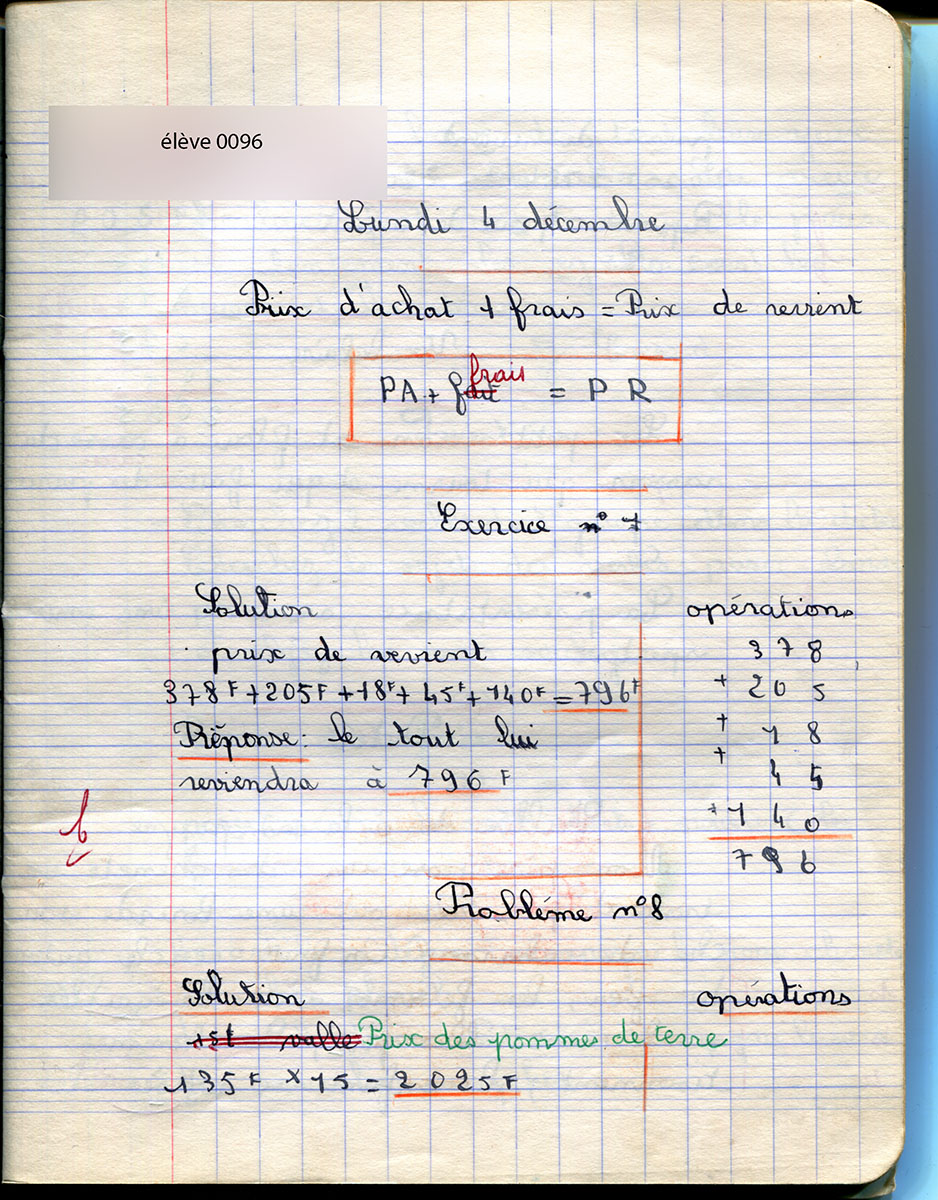 élève 0096
Lundi 4 décembre
Prix d'achat + frais = Prix de revient
PA + frais = P R
Exercice n° 7
Solution
opérations
prix de revient
378F + 205F + 18F + 45F + 140F = 796F
Réponse : le tout lui
reviendra à 796 F
378
+ 205
+ 18
+ 45
+ 140
796
b
Probléme n°8
Solution
opérations
1st valle Prix des pommes de terre
135F × 15 = 2025F